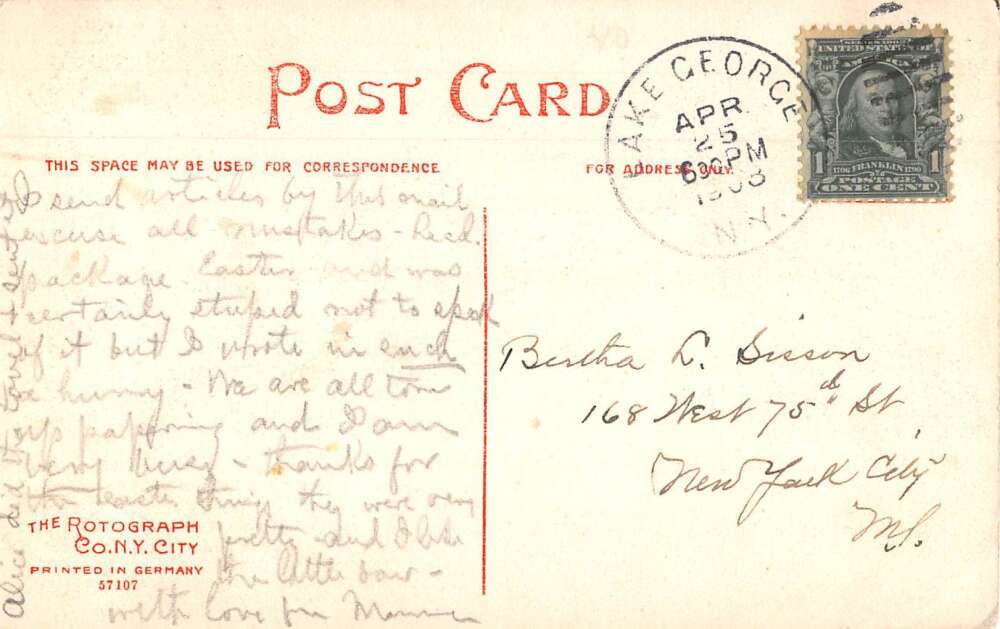 POST CARD
THIS SPACE MAY BE USED FOR CORRESPONDENCE
FOR ADDRESS ONLY.
LAKE GEORGE
APR
25
600PM
1908
N.Y.
SERIES 1902
UNITED STATES OF
AMERICA
1706 FRANKLIN 1790
POSTAGE
1 ONE CENT 1
I send articles by this mail
excuse all mistakes - Recd.
package Easter and was
certainly stupid not to speak
of it but I wrote in such
a hurry - We are all torn
up papering and I am
very busy - thanks for
the easter things they were very
pretty and I like
the little
with love from Mamma
Alice did
Bertha L. Sisson
168 West 75th St
New York City
THE ROTOGRAPH
CO. N.Y. CITY
PRINTED IN GERMANY
57107